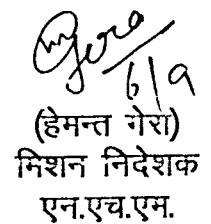 Gera
6/9
(हेमन्त गेरा)
मिशन निदेशक
एन.एच.एम.